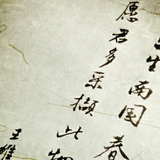 生南国春
愿君多采撷此物
王维